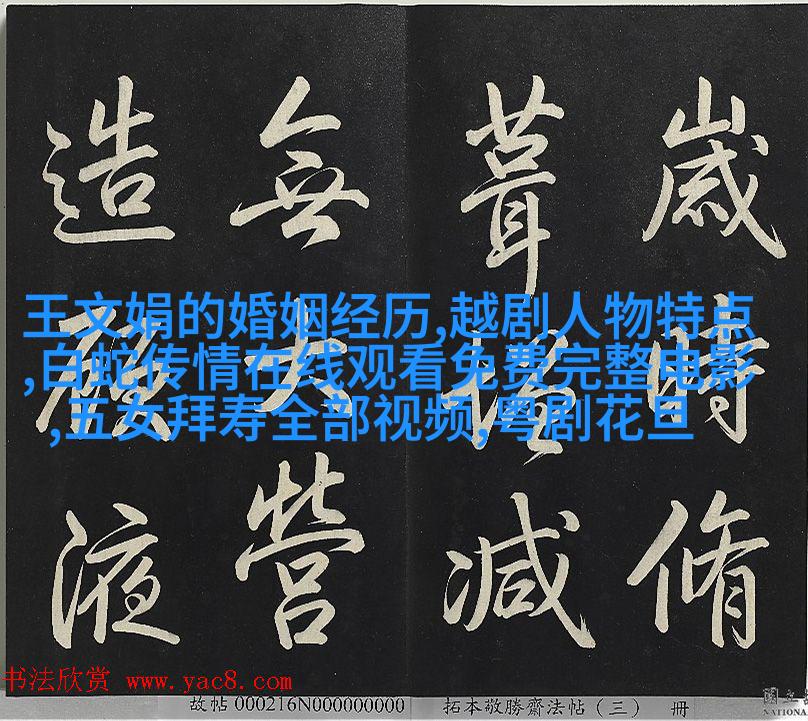 歲時脩
葺增減
無大營
造顧液
王文娟的婚姻经历,越剧人物特点
,白蛇传情在线观看免费完整电影
,五女拜寿全部视频,粤剧花旦
书法欣赏 www.yac8.com
故帖 000216N000000000 拓本敬勝齋法帖（三） 册
國立
NATIONA